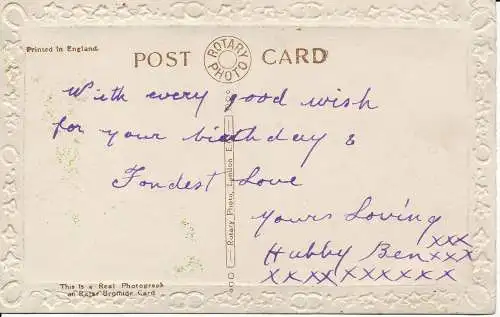 Printed in England.
POST CARD
ROTARY PHOTO
With every good wish
for your birthday &
Fondest Love
Yours Loving
Hubby Ben xxx
xxx
xxxx xxxxxx
Rotary Photo, London E.C.
This is a Real Photograph
on Rotar Bromide Card